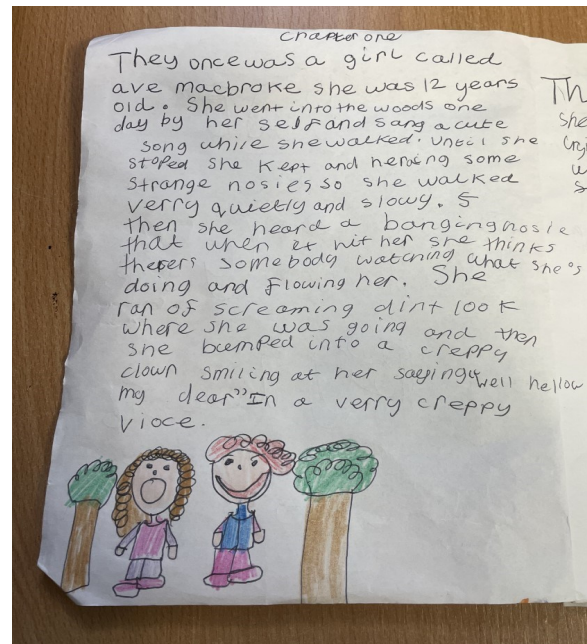 Chapter one
They once was a girl called
ave macbroke she was 12 years
old. She went into the woods one
day by her self and sang a cute
song while she walked. until she
stoped she kept and hering some
strange nosies so she walked
verry quietly and slowy. 5
then she heard a banging nosie
that when it hit her she thinks
thepers somebody watching what she's
doing and flowing her. She
ran of screaming dint look
where she was going and then
she bumped into a creppy
clown smiling at her saying "well hellow
my dear" In a verry creppy
vioce.
Th
She